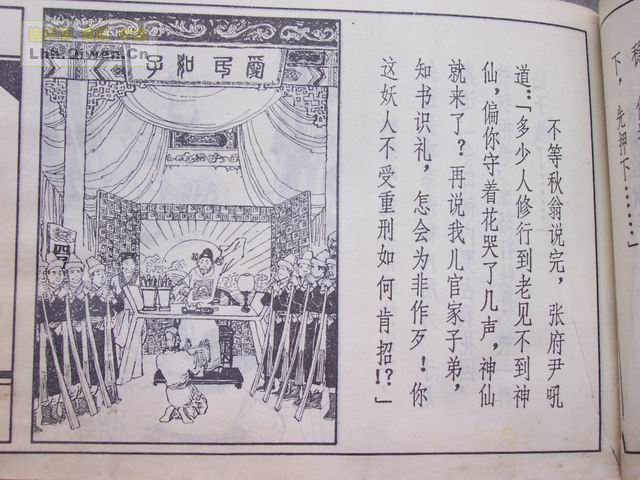 不等秋翁说完，张府尹吼
道：“多少人修行到老见不到神
仙，偏你守着花哭了几声，神仙
就来了？再说我儿官家子弟，
知书识礼，怎会为非作歹！你
这妖人不受重刑如何肯招！？”
愛民如子
下，先押下……”